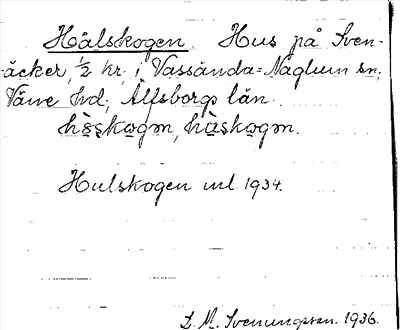 Hålskogen. Hus på Sven-
äcker, 1/2 kr. i Vassända=Naglum sn;
Väne hd; Älfsborgs län.
hɞskogm, hàskogm.
Hulskogen ml. 1934.
L. M. Svenungsson. 1936.